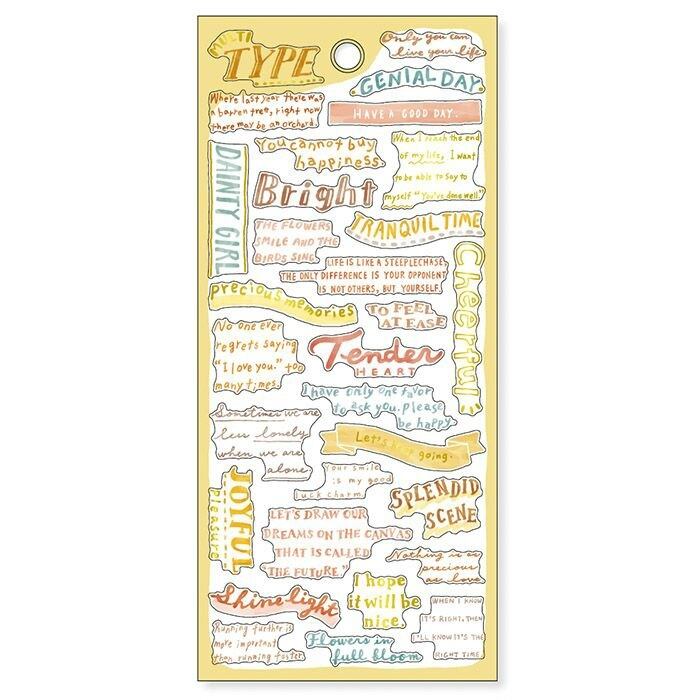 MULTI
TYPE
Only you can
live your life
GENIAL DAY
HAVE A GOOD DAY.
Where last year there was
a barren tree, right now
there may be an orchard.
You cannot buy
happiness.
When I reach the end
of my life, I want
to be able to say to
myself "You've done well."
DAINTY GIRL
Bright
TRANQUIL TIME
THE FLOWERS
SMILE AND THE
BIRDS SING.
LIFE IS LIKE A STEEPLECHASE.
THE ONLY DIFFERENCE IS YOUR OPPONENT
IS NOT OTHERS, BUT YOURSELF.
Cheerful
precious memories
TO FEEL
AT EASE
No one ever
regrets saying
"I love you." too
many times.
Tender
HEART
I have only one favor
to ask you. please
be happy
Sometimes we are
less lonely
when we are
alone.
Let's keep going.
Your smile
is my good
luck charm.
JOYFUL
Pleasure
SPLENDID
SCENE
LET'S DRAW OUR
DREAMS ON THE CANVAS
THAT IS CALLED
THE FUTURE"
Nothing is as
precious
as love
Shine light
I hope
it will be
nice.
WHEN I KNOW
IT'S RIGHT, THEN
I'LL KNOW IT'S THE
RIGHT TIME.
Running further is
more important
than running faster
Flowers in
full bloom